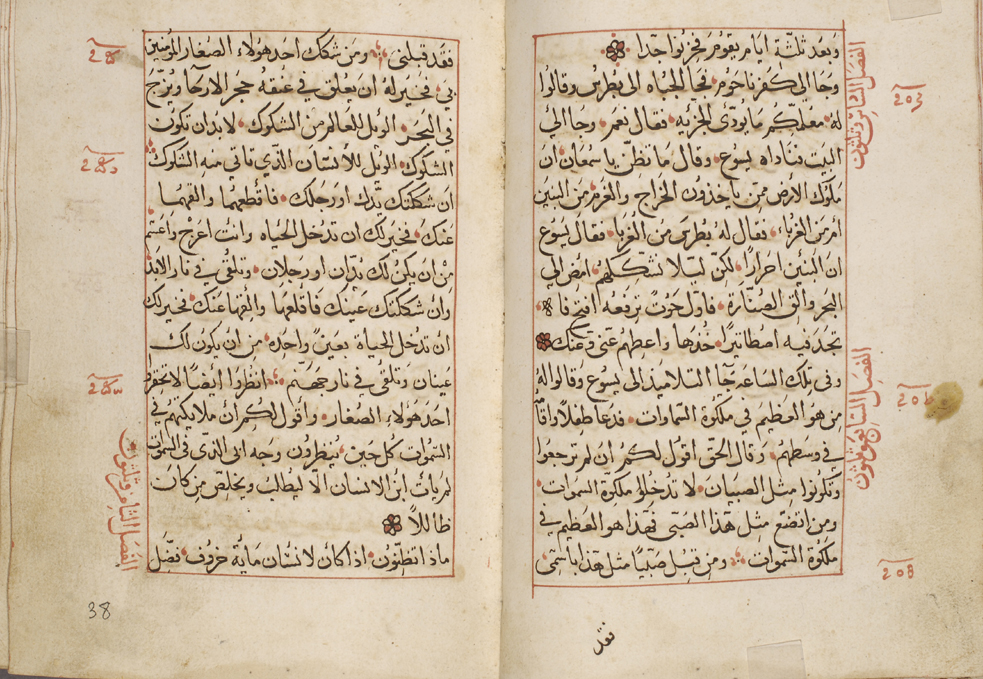 وبعد ثلثة ايام يقوم فحزنوا جدا
وجا الى كفرناحوم فجا الجباه الى بطرس وقالوا
له معلمكم ما يودى الجزيه فقال نعم وجا الى
البيت فناداه يسوع وقال ما تظن يا سمعان ان
ملوك الارض ممن ياخذون الخراج والغرم من البنين
أم من الغرباء فقال له بطرس من الغربا فقال يسوع
ان البنين احرارًا لكن ليلا نشككهم امض الى
البحر والق الصنارة فاول حوت ترفعه افتح فاه
تجد فيه اصطاتيرًا خذها واعطهم عنى وعنك
وفى تلك الساعه جآ التلاميذ الى يسوع وقالوا له
من هو العظيم في ملكوة السماوات فدعا طفلًا واقامه
في وسطهم وقال الحق اقول لكم ان لم ترجعوا
وتكونوا مثل الصبيان لا تدخلوا ملكوة السموات
ومن اتضع مثل هذا الصبى فهذا هو العظيم في
ملكوة السموات ومن قبل صبيًا مثل هذا باسمى
فقد
الفصل السادس وثلثون
الفصل السابع وثلثون
فقد قبلنى ومن شكك احد هولاء الصغار المؤمنين
بي فخير له ان يعلق في عنقه حجر الارحا ويزج
في البحر الويل للعالم من الشكوك لا بد ان تكون
الشكوك الويل للأنسان الذي تاتي منه الشكوك
ان شككتك يدك او رجلك فاقطعهما والقهما
عنك فخير لك ان تدخل الحياه وانت اعرج واعسم
من ان يكن لك يدان او رجلان وتلقى في نار الأبد
وان شككتك عينك فاقلعها والقها عنك فخير لك
ان تدخل الحياة بعين واحده من أن يكون لك
عينان وتلقى في نار جهنم انظروا ايضًا لا تحقروا
احد هولاء الصغار وأقول لكم أن ملايكتهم في
السموات كل حين ينظرون وجه ابى الذى فى السموات
لم يات ابن الانسان الا ليطلب ويخلص من كان
ضاللًا
ماذا تظنون اذا كان لانسان ماية خروف فضل
الفصل الثامن وثلثون
38